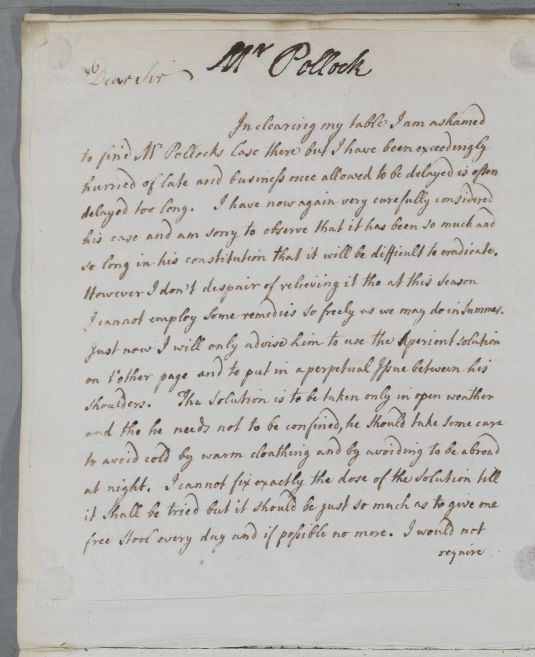 Mr Pollock
Dear Sir
In clearing my table I am ashamed
to find Mr Pollocks Case there but I have been exceedingly
hurried of late and business once allowed to be delayed is often
delayed too long. I have now again very carefully considered
his case and am sorry to observe that it has been so much and
so long in his constitution that it will be difficult to eradicate.
However I don't despair of relieving it tho at this season
I cannot employ some remedies so freely as we may do in Summer.
Just now I will only advise him to use the Aperient solution
on t'other page and to put in a perpetual Issue between his
Shoulders. The Solution is to be taken only in open weather
and tho he needs not to be confined, he should take some care
to avoid cold by warm cloathing and by avoiding to be abroad
at night. I cannot fix exactly the dose of the Solution till
it shall be tried but it should be just so much as to give one
free stool every day and if possible no more. I would not
require